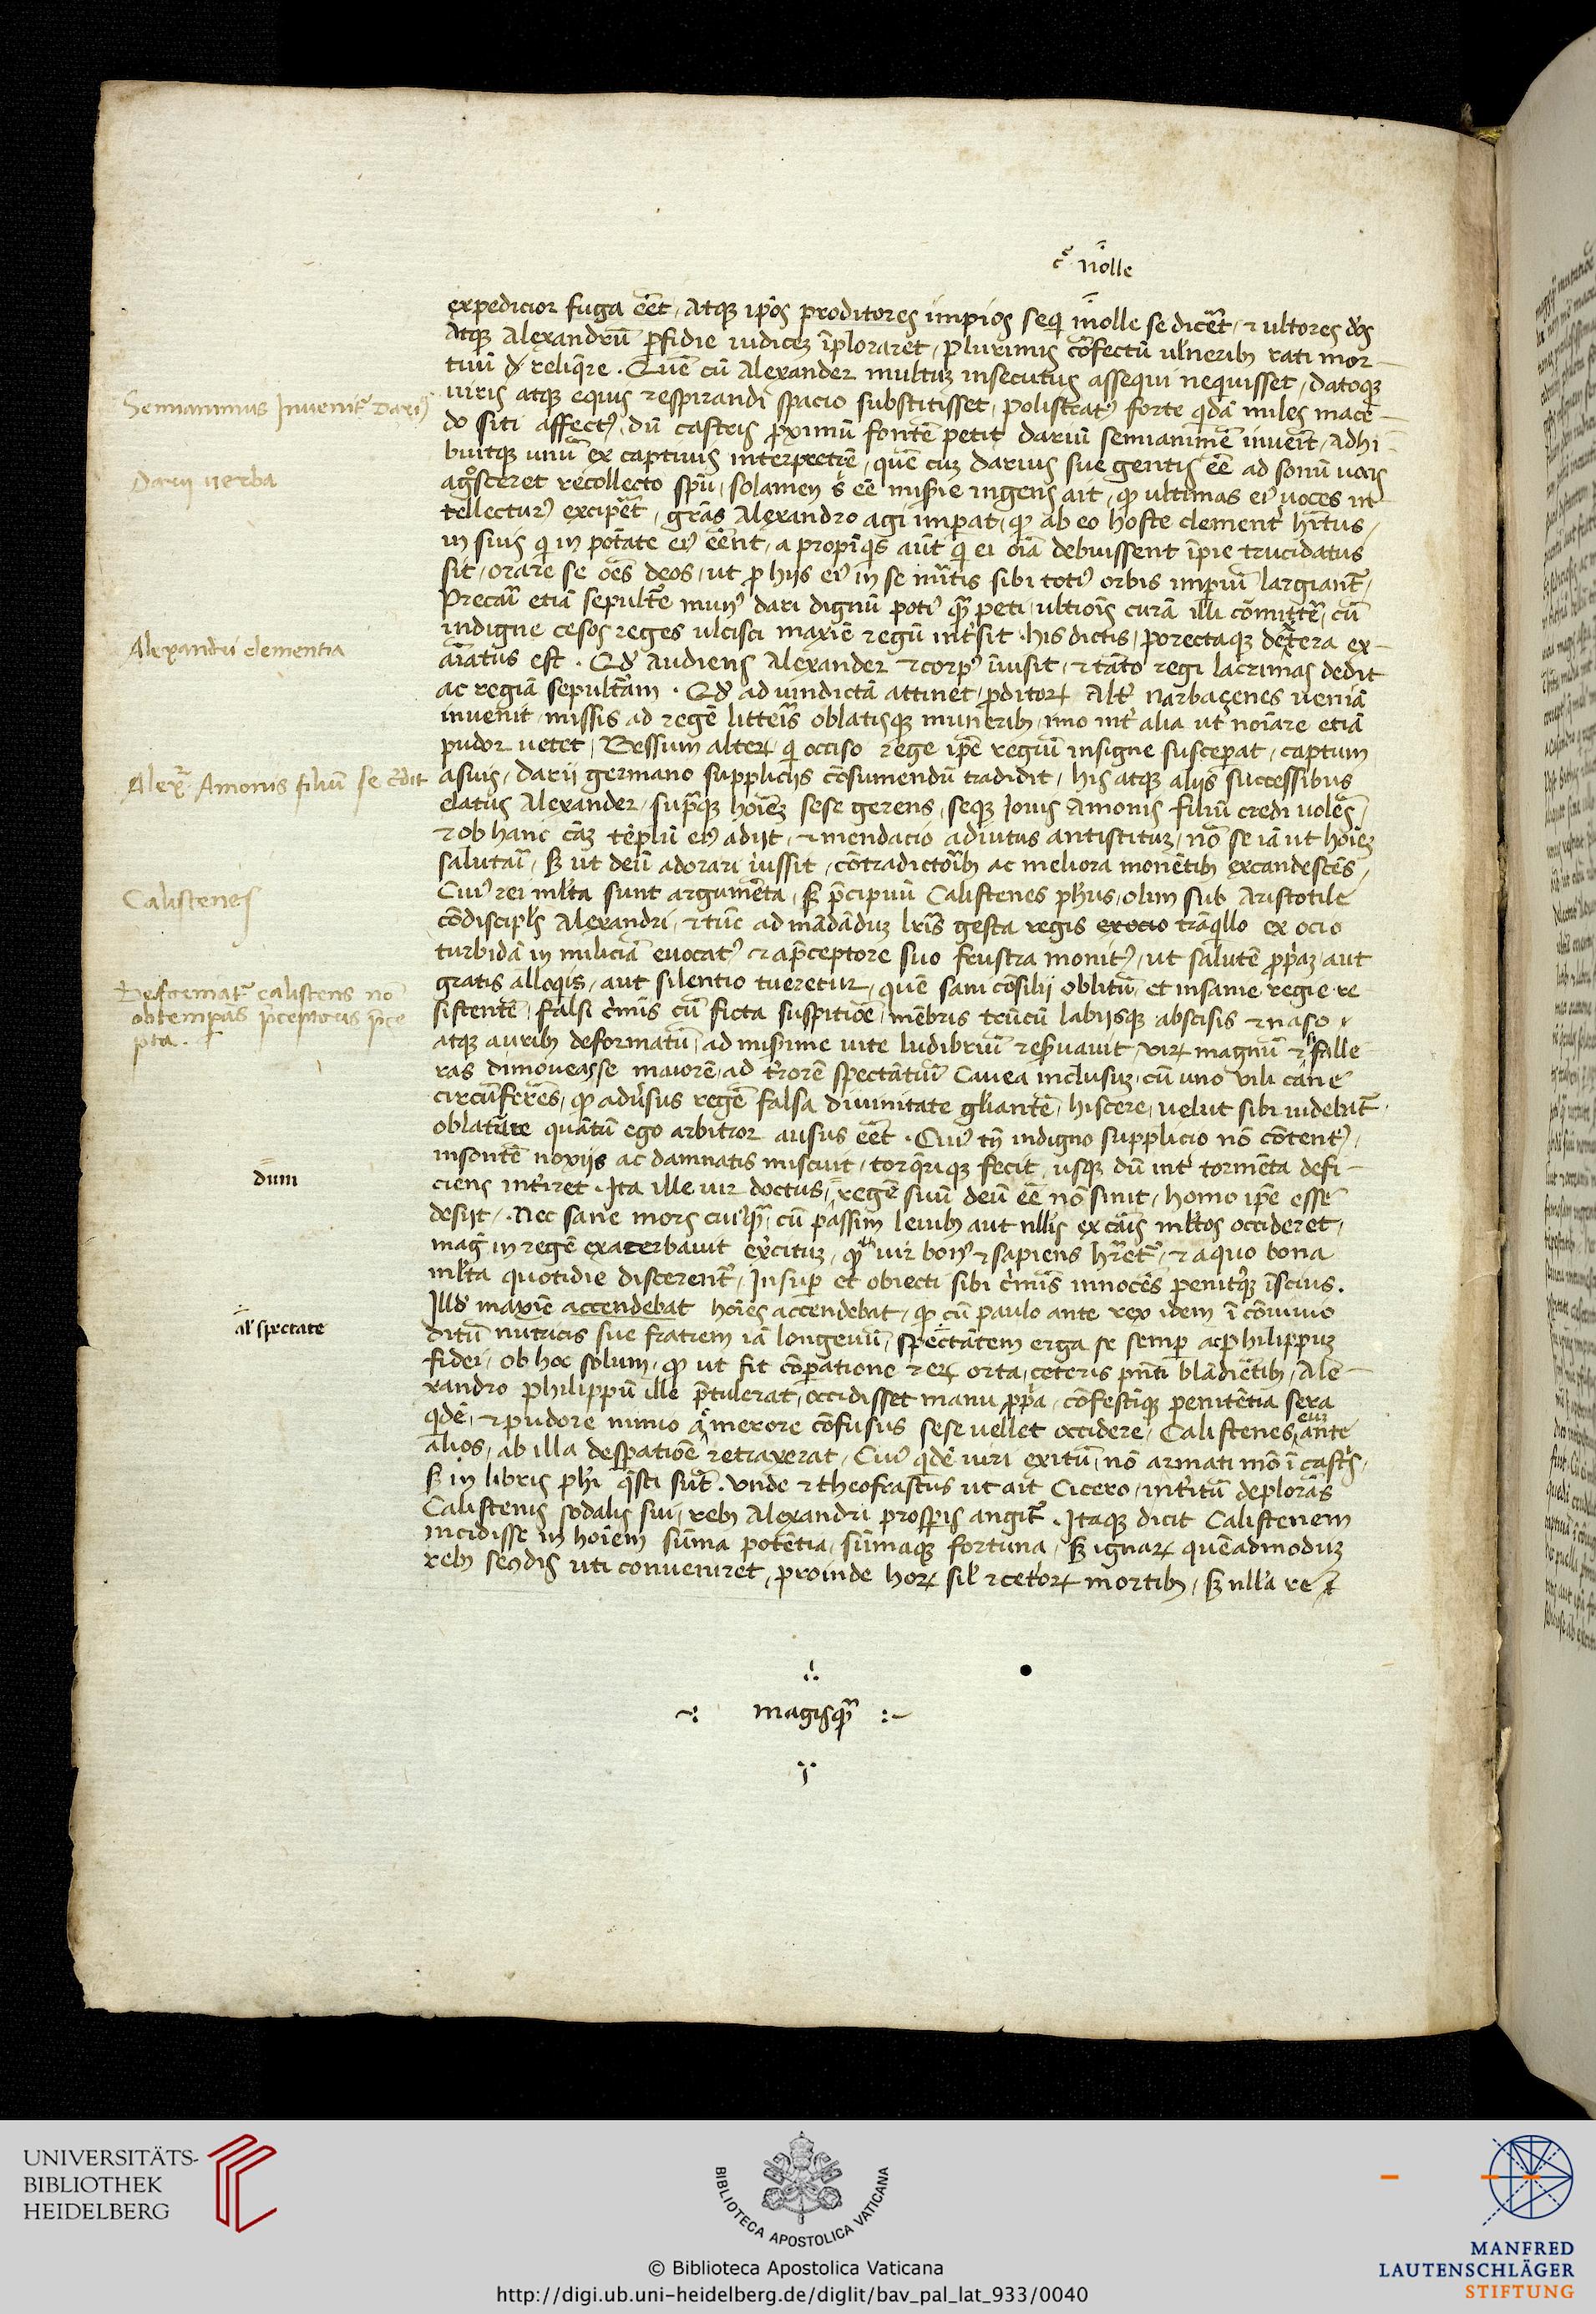 c̄ nolle
expedicior fuga eēt, Atqꝫ ip̄os proditores impios seq̄ nolle se dicēt, ⁊ ultores dōs
Atqꝫ Alexandrū ꝑfidie iudicez īploraret, plurimis cōfectū vlneribꝫ rati mor-
Semianimus Inuenit᷑ Darius
uiris atqꝫ equis respirandi spacio substitisset, polistratꝰ forte qdā miles mace-
do siti affectꝰ, dū castris ꝓximū fontē petit dariū semianimē inueit, Adhi-
buitqꝫ unū ex captiuis interpretē, quē cuz darius sue gentis eē ad sonū uocis
Darij uerba
agōsceret recollecto spū, solamen s eē misie ingens ait, qꝫ ultimas eiꝰ uoces in-
tellecturꝰ excipēt, grās Alexandro agi impat, qꝫ ab eo hoste clement᷑ hītus,
in suis q in potāte eiꝰ eēnt, a propīqs aūt q ei oīa debuissent īpie trucidatus
sit, orare se oēs deos, ut ꝓ hijs eiꝰ in se mītis sibi totiꝰ orbis impiū largiant᷑,
Precari etiā sepult᷑e munꝰ dari dignū potiꝰ qꝫ peti, ultiōis curā illi cōmitt᷑e, cū
Alexandri clementia
indigne cesos reges ulcisci maxīe regū int᷑sit. his dictis, porectaqꝫ dextera ex-
aīatus est. Qd audiens Alexander ⁊ corpꝰ inuisit, ⁊ tāto regi lacrimas dedit
ac regiā sepult᷑am. Qd ad uindictā attinet, ꝓditorꝝ Alt᷑ narbaçenes ueniā
inuenit, missis ad regē litteris oblatisqꝫ muneribꝫ, imo int᷑ alia ut noīare etiā
pudor uetet, Bessum alterꝝ q occiso rege ip̄e regiū insigne susceperat, captum
Alexr̄ Amonis filiū se credit
asuis, darij germano supplicijs cōsumendū tradidit, his atqꝫ alijs successibus
elatus Alexander, supraqꝫ hoīez sese gerens, seqꝫ Iouis Amonis filiū credi uolēs,
⁊ ob hanc cāz tēplū eiꝰ adijt, ⁊ mendacio adiutus antistituz, nō se iā ut hoīez
salutari, sꝫ ut deū adorari iussit, cōtradictoribꝫ ac meliora monētibꝫ excandescēs,
Calistenes
Cuiꝰ rei mlta sunt argumēta, sꝫ p̄cipuū Calistenes phus, olim sub Aristotile
cōdiscipls Alexandri, ⁊ tūc ad mādāduz lr̄is gesta regis ex ocio trāqllo ex ocio
turbidā in miliciā euocatꝰ ⁊ ap̄ceptore suo frustra monitꝰ, ut salutē ꝓpaz aut
Deformat᷑ calistens nō
obtempās p̄ceptoris p̄ce
pta.
gratis alloqis, aut silentio tueretur, quē sani cōsilij oblitū, et insanie regie re
sistentē, falsi c᷑mīs cū ficta suspitiōe, mēbris trūcū labijsqꝫ abscisis ⁊ naso,
atqꝫ auribꝫ deformatū, ad miseime uite ludibriū reseruauit, virꝝ magnū ⁊ falle
ras dimoueasse maiorē, ad t᷑rorē spectātiuī Cauea inclusuz, cū uno vili cane
circūferēs, qꝫ aduersus regē falsa diuinitate gliantē, hiscere, uelut sibi uidebat᷑.
oblatrare quātū ego arbitror ausus eēt. Cuiꝰ tn indigno supplicio nō cōtentꝰ,
insontē noxijs ac damnatis miscuit, torqriqꝫ fecit, usqꝫ dū int᷑ tormēta defi-
dum
ciens int᷑iret. Ita ille uir doctus, regē suū deū eē nō sinit, homo ip̄e esse
desijt. Nec sane mors cuiꝰqꝫ, cū passim leuibꝫ aut nllis ex cāis mltos occideret,
mag in regē exacerbauit ex᷑citum, qꝫ uir bonꝰ ⁊ sapiens hr̄et᷑, ⁊ aquo bona
mlta quotidie discerent᷑, Insup et obiecti sibi c᷑mīs innocēs penitqꝫ īscius.
Illd maxīe accendebat hoīes accendebat, qꝫ cū paulo ante rex idem ī cōuiuio
al spectate
ditū nutricis sue fratrem iā longeuū, spectātem erga se semp ac philippuz
fidei, ob hoc solum, qꝫ ut fit cōpatione ⁊ erꝝ orta, ceteris pnti blādiētibꝫ, Ale-
xandro philippū ille p̄tulerat, occidisset manu ꝓpa, cōfestīqꝫ penitētia sera
qdē, ⁊ pudore nimio ac merore cōfusus sese uellet occidere, Calistenes eum ante
alios, ab illa despatiōe retraxerat, Cuiꝰ qdē uiri exitū, nō armati mō ī castris,
sꝫ in libris phi qsti sūt. Vnde ⁊ theofrastus ut ait Cicero, int᷑itū deplorās
Calistenis sodalis sui, rebꝫ Alexandri prosperis angit᷑. Itaqꝫ dicit Calistenem
incidisse in hoīem sūma potētia, sūmaqꝫ fortuna, sꝫ ignarꝝ quēadmoduz
rebꝫ secndis uti conueniret, proinde horꝝ sil ⁊ ceterorꝝ mortibꝫ, sꝫ nlla re ī
magisqꝫ
UNIVERSITÄTS-
BIBLIOTHEK
HEIDELBERG
BIBLIOTECA APOSTOLICA VATICANA
© Biblioteca Apostolica Vaticana
http://digi.ub.uni-heidelberg.de/diglit/bav_pal_lat_933/0040
MANFRED
LAUTENSCHLÄGER
STIFTUNG